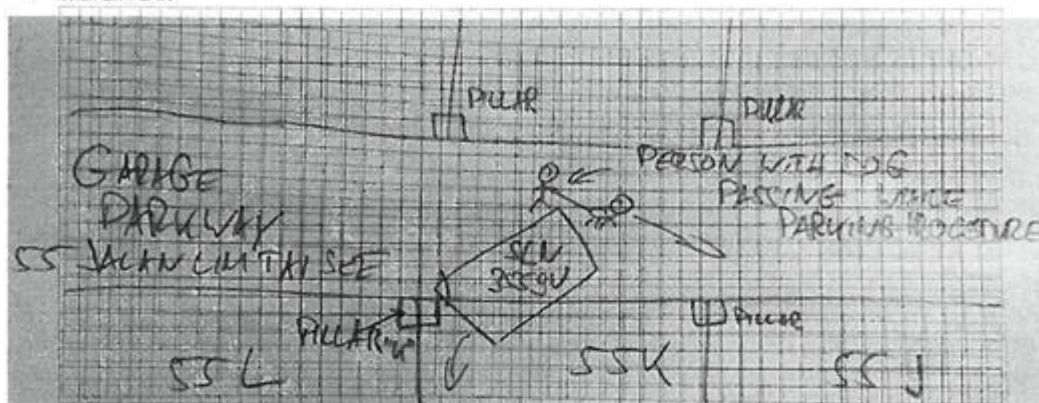 PILLAR
PILLAR
GARAGE
PARKWAY
55 JALAN LIM TAI SEE
PERSON WITH DOG
PASSING WHILE
PARKING PROCEDURE
SLN
3559U
PILLAR "K"
PILLAR
55L
55K
55J